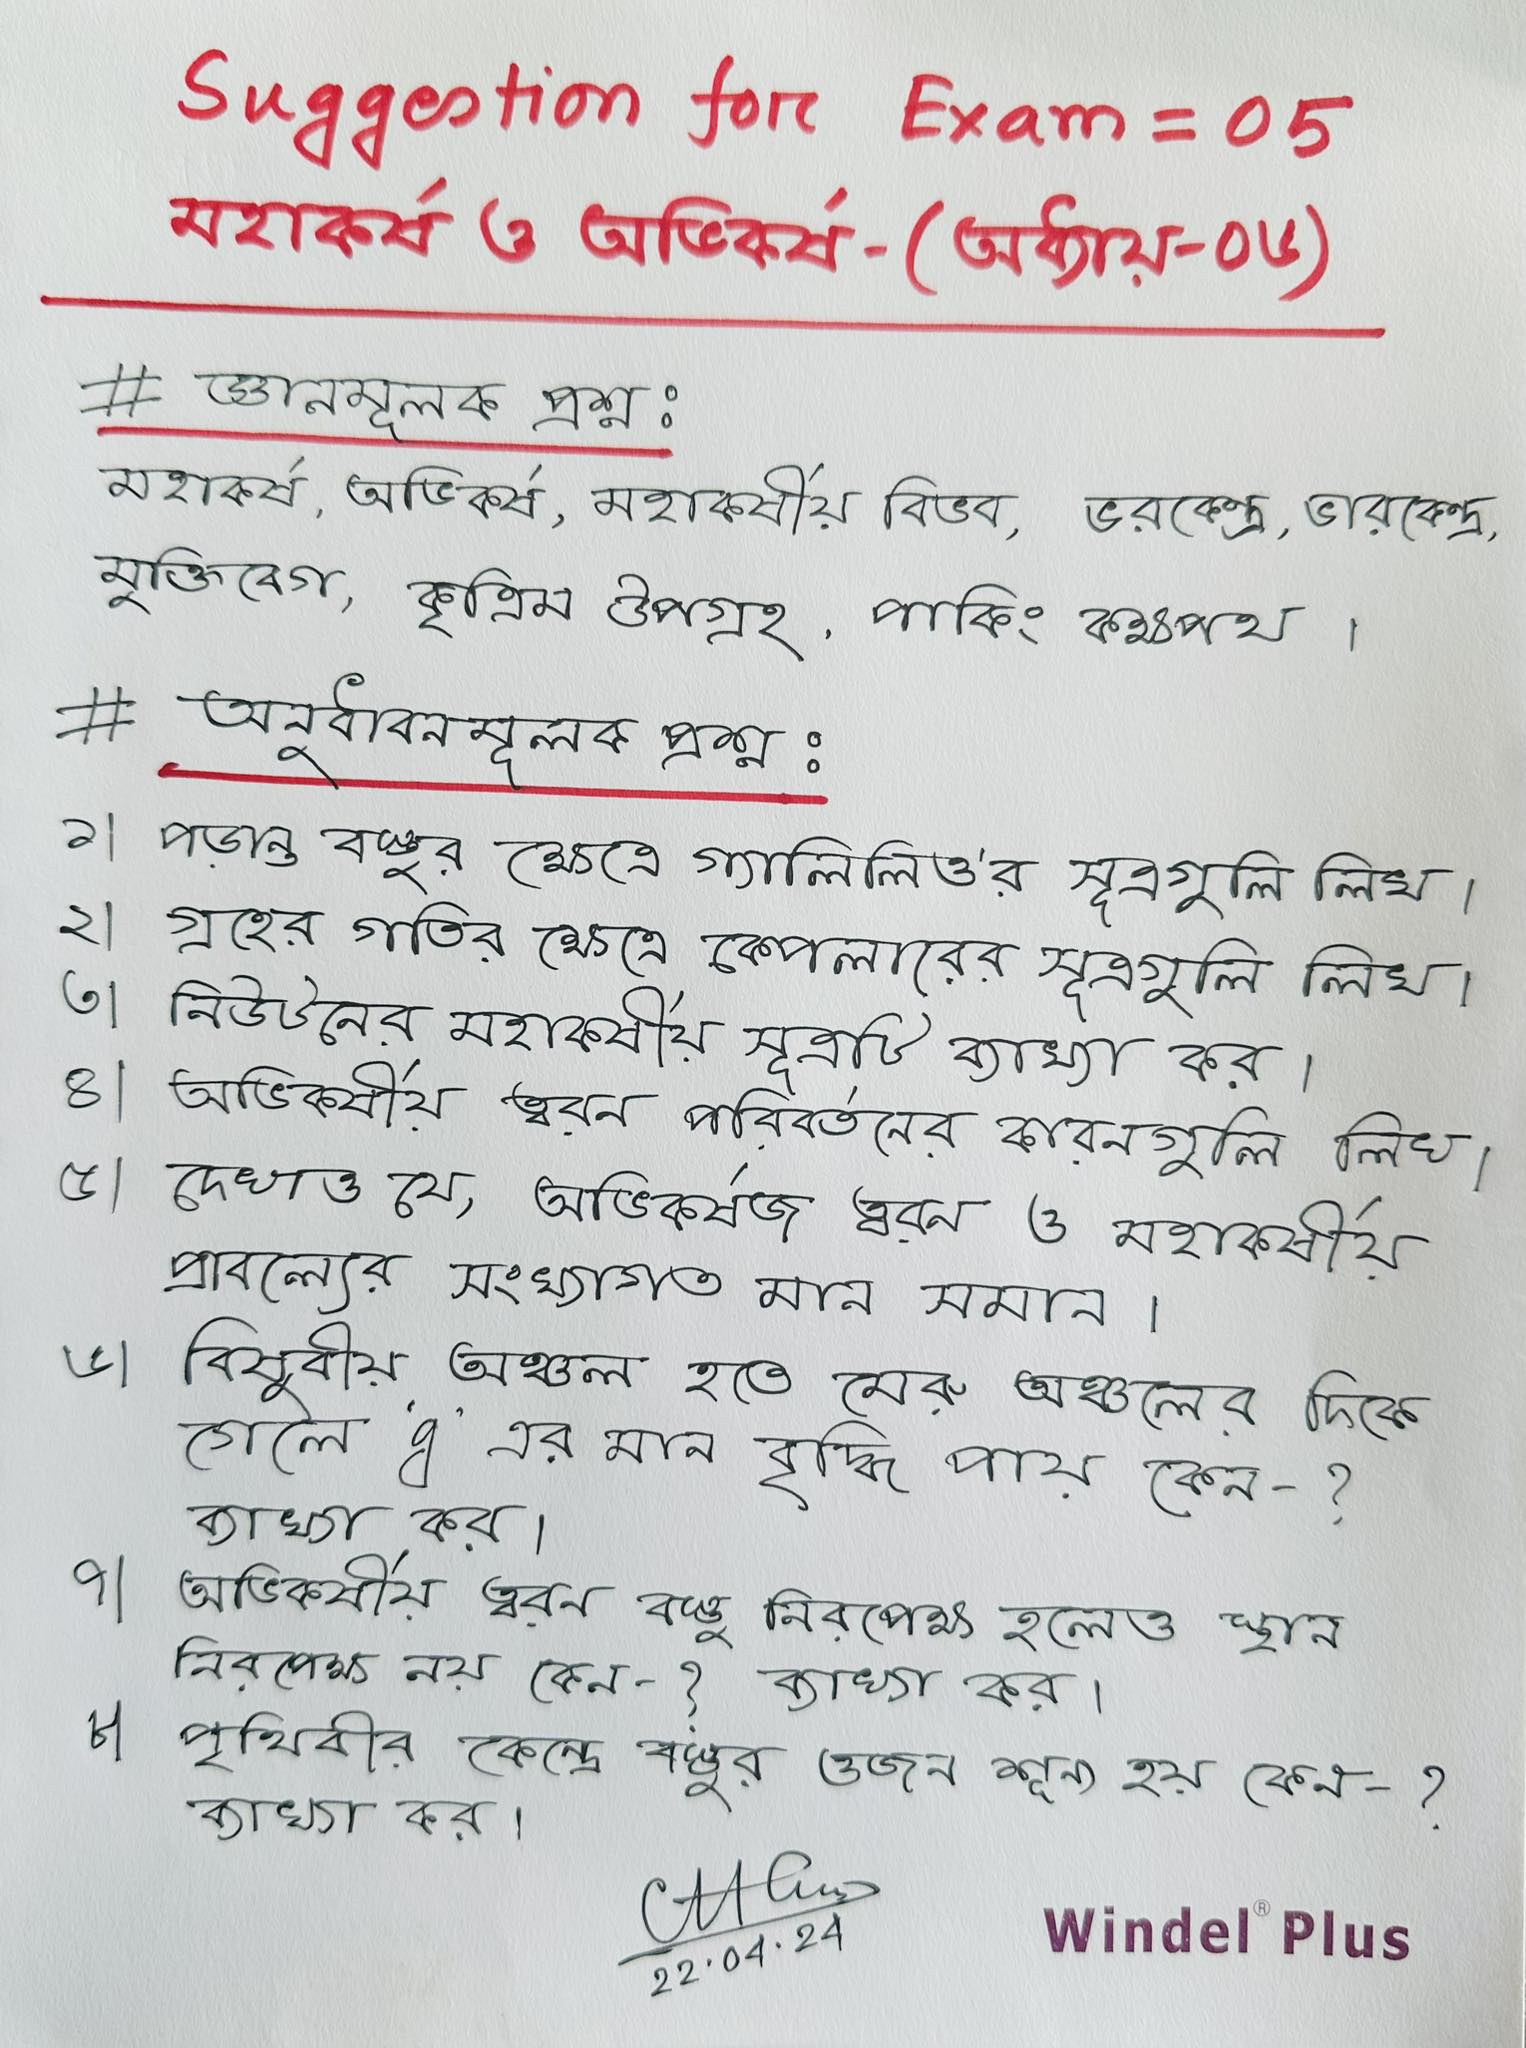 Suggestion for Exam = 05
মহাকর্ষ ও অভিকর্ষ - (অধ্যায়-০৬)
# জ্ঞানমূলক প্রশ্ন ঃ
মহাকর্ষ, অভিকর্ষ, মহাকর্ষীয় বিভব, ভরকেন্দ্র, ভারকেন্দ্র,
মুক্তিবেগ, কৃত্রিম উপগ্রহ, পার্কিং কক্ষপথ ।
# অনুধাবনমূলক প্রশ্ন ঃ
১। পড়ান্ত বস্তুর ক্ষেত্রে গ্যালিলিও'র সূত্রগুলি লিখ ।
২। গ্রহের গতির ক্ষেত্রে কেপলারের সূত্রগুলি লিখ ।
৩। নিউটনের মহাকর্ষীয় সূত্রটি ব্যাখ্যা কর ।
৪। অভিকর্ষীয় ত্বরন পরিবর্তনের কারনগুলি লিখ ।
৫। দেখাও যে, অভিকর্ষজ ত্বরন ও মহাকর্ষীয়
প্রাবল্যের সংখ্যাগত মান সমান ।
৬। বিষুবীয় অঞ্চল হতে মেরু অঞ্চলের দিকে
গেলে 'g' এর মান বৃদ্ধি পায় কেন-?
ব্যাখ্যা কর ।
৭। অভিকর্ষীয় ত্বরন বস্তু নিরপেক্ষ হলেও স্থান
নিরপেক্ষ নয় কেন-? ব্যাখ্যা কর ।
৮। পৃথিবীর কেন্দ্রে বস্তুর ওজন শূন্য হয় কেন-?
ব্যাখ্যা কর ।
22.04.24
Windel® Plus